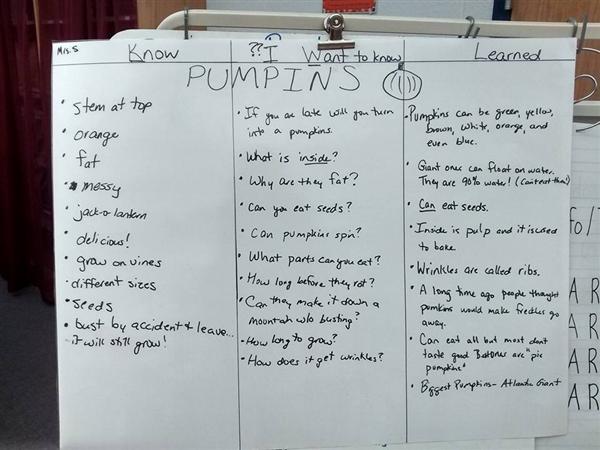 Mrs. S
Know
?? I Want to know
Learned
PUMPINS
• Stem at top
• orange
• fat
• messy
• jack-o lantern
• delicious!
• grow on vines
• different sizes
• seeds
• bust by accident & leave...
it will still grow!
• If you are late will you turn
into a pumpkins.
• What is inside?
• Why are they fat?
• Can you eat seeds?
• Can pumpkins spin?
• What parts can you eat?
• How long before they rot?
• Can they make it down a
w/o busting?
• How long to grow?
• How does it get wrinkles?
• Pumpkins can be green, yellow,
brown, white, orange, and
even blue.
• Giant ones can float on water.
They are 90% water! (Can eat them!)
• Can eat seeds.
• Inside is pulp and it is used
to bake
• Wrinkles are called ribs.
• A long time ago people thought
pumkins would make freckles go
away.
• Can eat all but most don't
taste good. are "pie
pumpkins"
• Biggest Pumpkins- Atlantic Giant
fo/T
A R
A R
A R
A R